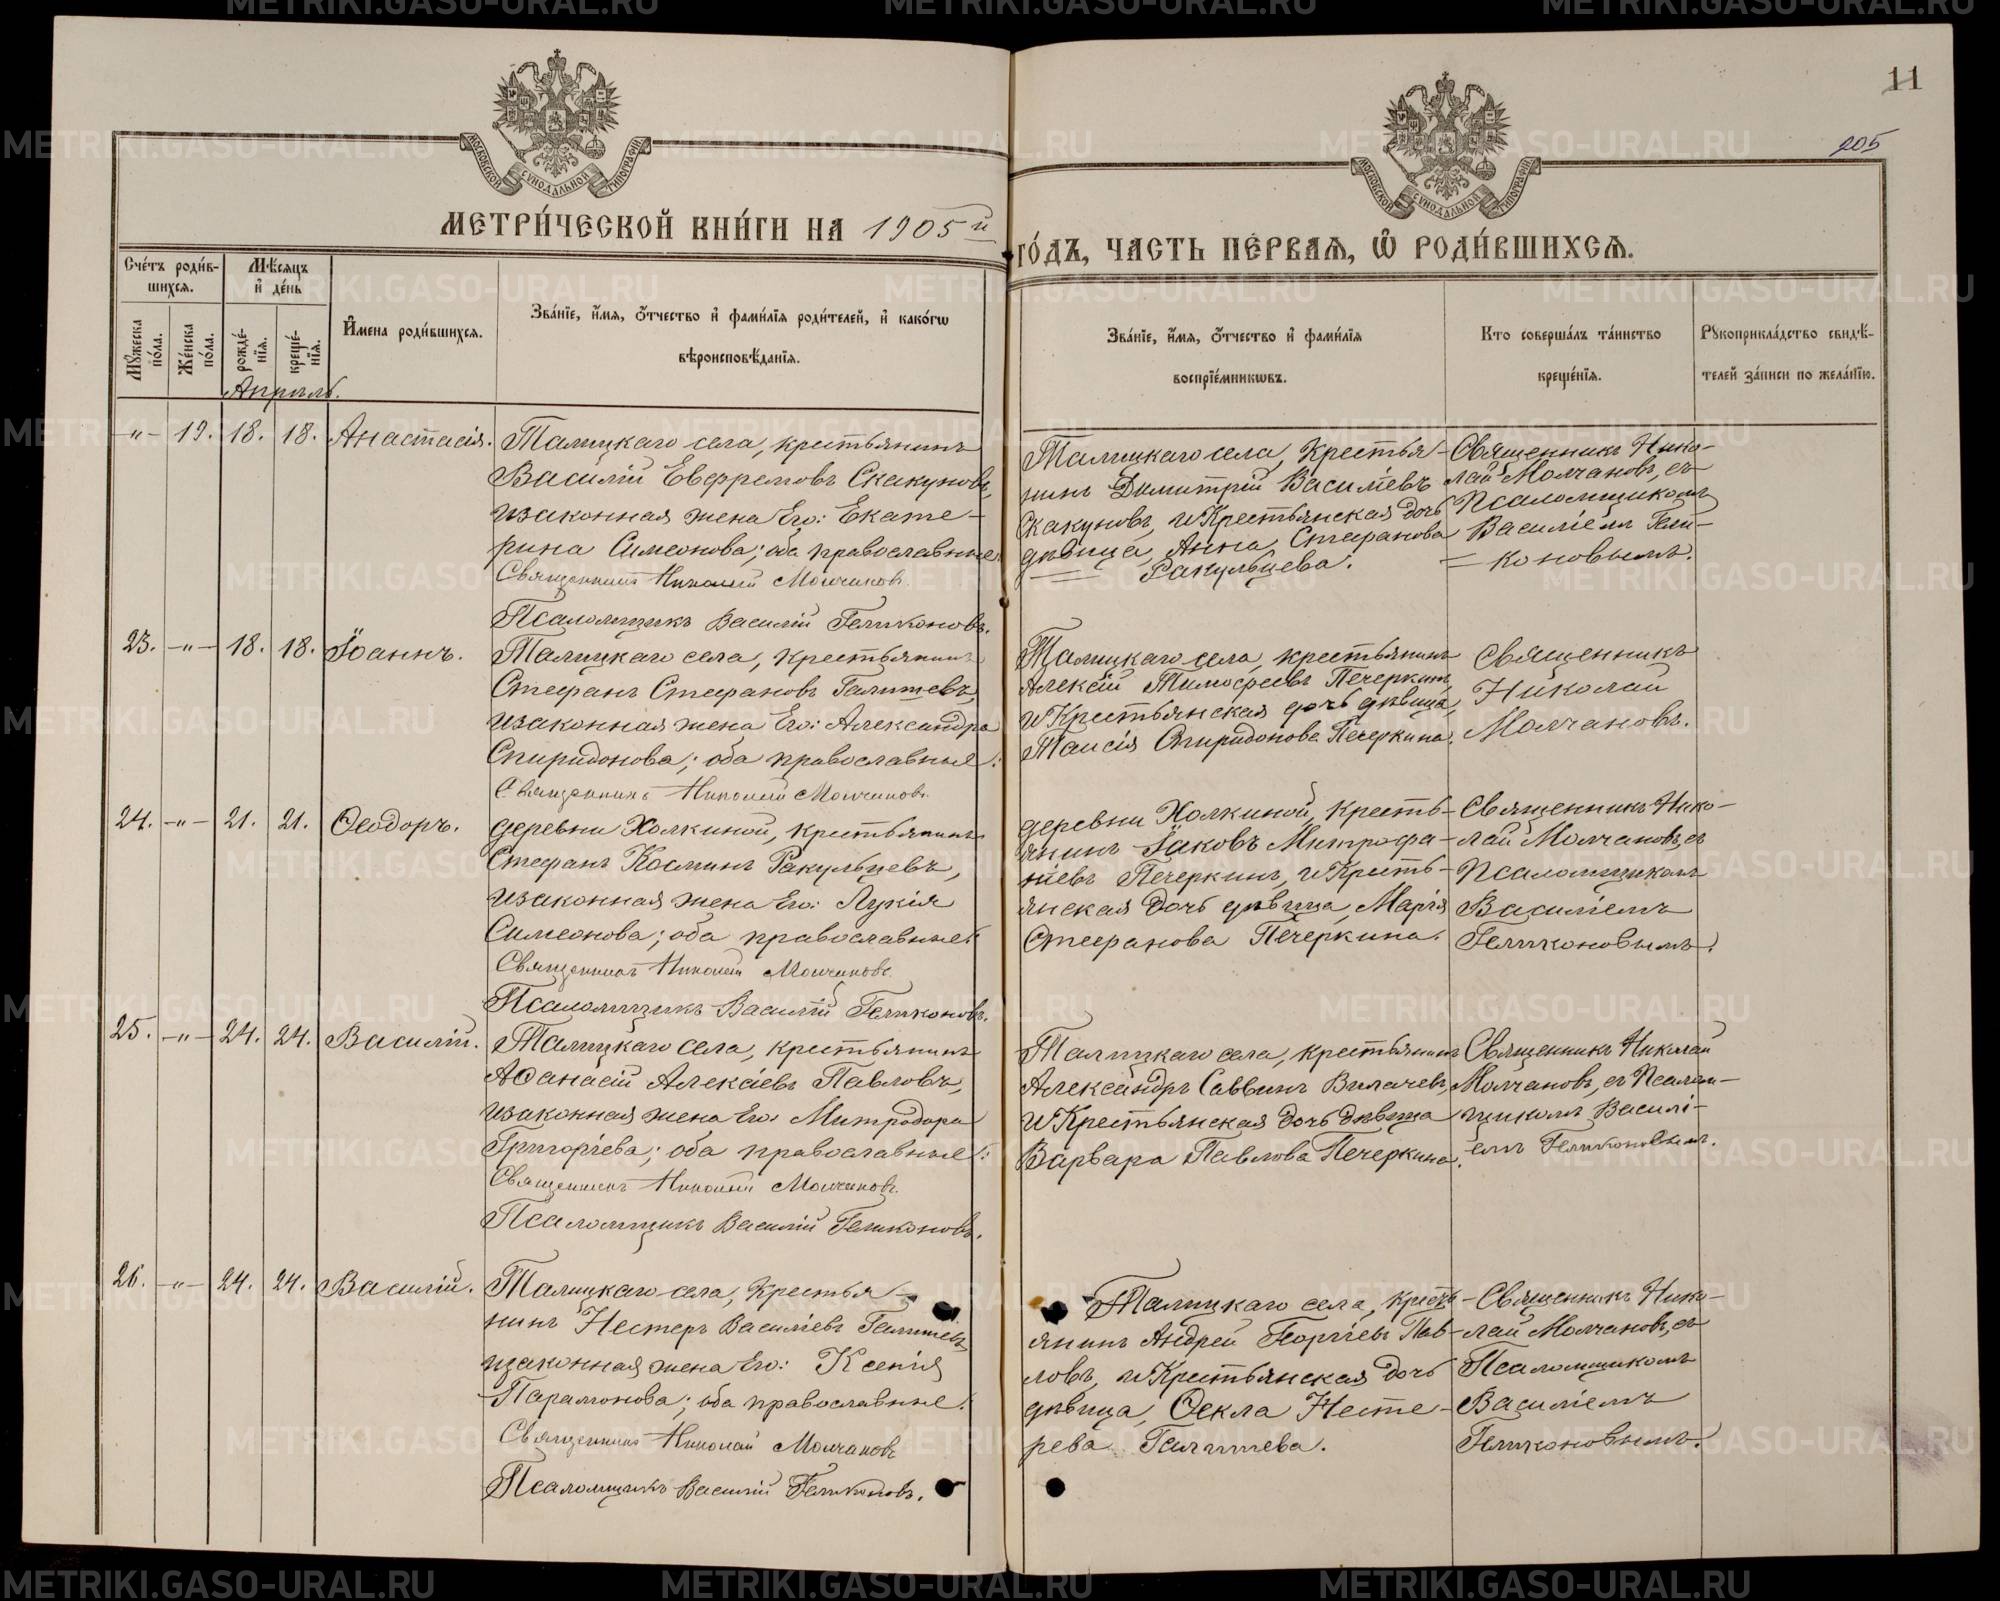 11
205
МОСКОВСКОЙ СѴНОДАЛЬНОЙ ТИПОГРАФІИ
МОСКОВСКОЙ СѴНОДАЛЬНОЙ ТИПОГРАФІИ
МЕТРИ́ЧЕСКОЙ КНИ́ГИ НА 1905й
ГО́ДЪ, ЧАСТЬ ПЕ́РВАѦ, Ѡ РОДИ́ВШИХСѦ.
Сче́тъ роди́в-
шихсѧ.
Мѣ́сѧцъ
и҆ де́нь
Мꙋ́жеска по́ла.
Же́нска по́ла.
рожде́-
нїѧ.
креще́-
нїѧ.
И҆мена роди́вшихсѧ.
Зва́нїе, и҆́мѧ, ѻ҆́тчество и҆ фами́лїѧ роди́телей, и҆ како́гѡ
вѣроисповѣ́данїѧ.
Зва́нїе, и҆́мѧ, ѻ҆́тчество и҆ фами́лїѧ
воспрїе́мникѡвъ.
Кто соверша́лъ та́инство
креще́нїѧ.
Рꙋкоприкла́дство свидѣ́-
телей за́писи по жела́нїю.
Апрѣль.
-"- 19. 18. 18. Анастасія.
Талицкаго села, крестьянинъ
Василій Евфремовъ Скакуновъ,
изаконная жена Его: Екате-
рина Симеонова; оба православные
Священникъ Николай Молчановъ
Псаломщикъ Василій Геликоновъ.
Талицкаго села, Крестья-
нинъ Димитрій Василіевъ
Скакуновъ, и Крестьянская дочь
дѣвица, Анна Стефанова
Ракульцева.
Священникъ Нико-
лай Молчановъ, съ
Псаломщикомъ
Василіемъ Гели-
коновымъ.
23. -"- 18. 18. Іоаннъ.
Талицкаго села, крестьянинъ
Стефанъ Стефановъ Галишевъ,
изаконная жена Его: Александра
Спиридонова; оба православные:
Священникъ Николай Молчановъ.
Талицкаго села, крестьянинъ
Алексій Тимофеевъ Печеркинъ,
и Крестьянская дочь дѣвица,
Таисія Спиридонова Печеркина.
Священникъ
Николай
Молчановъ.
24. -"- 21. 21. Ѳеодоръ.
деревни Холкиной, крестьянинъ
Стефанъ Косминъ Ракульцевъ,
изаконная жена Его: Лукія
Симеонова; оба православные:
Священникъ Николай Молчановъ
Псаломщикъ Василій Геликоновъ.
деревни Холкиной, Кресть-
янинъ Іаковъ Митрофа-
новъ Печеркинъ, и Кресть-
янская дочь дѣвица, Марія
Стефанова Печеркина.
Священникъ Нико-
лай Молчановъ, съ
Псаломщикомъ
Василіемъ
Геликоновымъ.
25. -"- 24. 24. Василій.
Талицкаго села, крестьянинъ
Аѳанасій Алексіевъ Павловъ,
изаконная жена Его: Митродора
Григоріева; оба православные:
Священникъ Николай Молчановъ.
Псаломщикъ Василій Геликоновъ.
Талицкаго села, крестьянинъ
Александръ Саввинъ Вилачевъ,
и Крестьянская дочь дѣвица
Варвара Павлова Печеркина.
Священникъ Николай
Молчановъ, съ Псалом-
щикомъ Василі-
емъ Геликоновымъ.
26. -"- 24. 24. Василій.
Талицкаго села, Крестья-
нинъ Нестеръ Василіевъ Галишевъ,
изаконная жена Его: Ксенія
Парамонова; оба православные:
Священникъ Николай Молчановъ
Псаломщикъ Василій Геликоновъ.
Талицкаго села, кресть-
янинъ Андрей Георгіевъ Пав-
ловъ, и Крестьянская дочь
дѣвица, Ѳекла Несте-
рева Галишева.
Священникъ Нико-
лай Молчановъ, съ
Псаломщикомъ
Василіемъ
Геликоновымъ.
METRIKI.GASO-URAL.RU